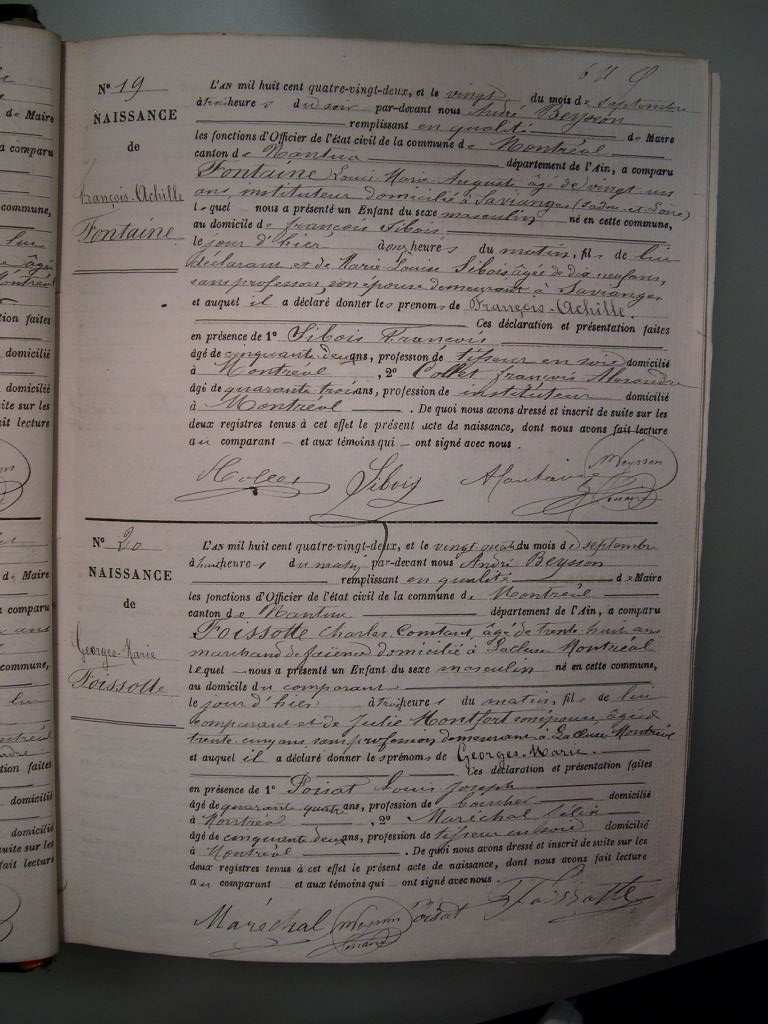 N° 19
NAISSANCE
de
François-Achille
Fontaine
L'AN mil huit cent quatre-vingt-deux, et le vingt du mois de septembre
à trois heures du soir par-devant nous André Beysson
remplissant en qualité de Maire
les fonctions d'Officier de l'état civil de la commune de Montréal
canton de Nantua département de l'Ain, a comparu
Fontaine Louis Marie Auguste, âgé de vingt-un
ans instituteur domicilié à Savianges (Saône-et-Loire)
lequel nous a présenté un Enfant du sexe masculin né en cette commune,
au domicile de françois Sibois
le jour d'hier à onze heures du matin, fils de lui
déclarant et de Marie Louise Sibois âgée de dix neuf ans,
sans profession, son épouse demeurant à Savianges
et auquel il a déclaré donner les prenoms de François-Achille.
Ces déclaration et présentation faites
en présence de 1° Sibois François
âgé de cinquante deux ans, profession de tisseur en soie domicilié
à Montréal, 2° Collet françois Alexandre
âgé de quarante trois ans, profession de instituteur domicilié
à Montréal. De quoi nous avons dressé et inscrit de suite sur les
deux registres tenus à cet effet le présent acte de naissance, dont nous avons fait lecture
au comparant et aux témoins qui ont signé avec nous.
Collet Sibois AFontaine Beysson
N° 20
NAISSANCE
de
Georges-Marie
Foissotte
L'AN mil huit cent quatre-vingt-deux, et le vingt quatre du mois de septembre
à huit heures du matin par-devant nous André Beysson
remplissant en qualité de Maire
les fonctions d'Officier de l'état civil de la commune de Montréal
canton de Nantua département de l'Ain, a comparu
Foissotte Charles Constant, âgé de trente huit ans
marchand de faïence domicilié à Lacluse Montréal
lequel nous a présenté un Enfant du sexe masculin né en cette commune,
au domicile du comparant
le jour d'hier à trois heures du matin, fils de lui
comparant et de Julie Montfort son épouse, âgée de
trente cinq ans, sans profession demeurant à Lacluse Montréal
et auquel il a déclaré donner les prénoms de Georges-Marie.
Ces déclaration et présentation faites
en présence de 1° Foisat Louis Joseph
âgé de quarante quatre ans, profession de boucher domicilié
à Montréal, 2° Maréchal félix
âgé de cinquante deux ans, profession de tisseur en soie domicilié
à Montréal. De quoi nous avons dressé et inscrit de suite sur les
deux registres tenus à cet effet le présent acte de naissance, dont nous avons fait lecture
au comparant et aux témoins qui ont signé avec nous.
Maréchal Beysson Foisat Foissotte